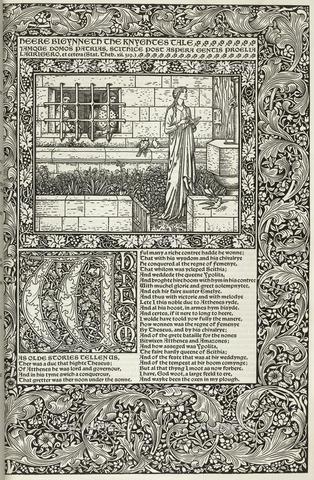 HEERE BIGYNNETH THE KNYGHTES TALE
IAMQUE DOMOS PATRIAS, SCITHICE POST ASPERA GENTIS PROELIA
LAURIGERO, et cetera (Stat. Theb. xii. 519.).
WHILOM,
AS OLDE STORIES TELLEN US,
Ther was a duc that highte Theseus;
Of Atthenes he was lord and governour,
And in his tyme swich a conquerour,
That gretter was ther noon under the sonne.
Ful many a riche contree hadde he wonne;
That with his wysdom and his chivalrye
He conquered al the regne of Femenye,
That whilom was ycleped Scithia;
And weddede the queene Ypolita,
And broghte hire hoom with hym in his contree
With muchel glorie and greet solempnytee,
And eek hir faire suster Emelye.
And thus with victorie and with melodye
Lete I this noble duc to Atthenes ryde,
And al his hoost, in armes hym bisyde.
And certes, if it nere to long to heere,
I wolde have toold yow fully the manere,
How wonnen was the regne of Femenye
By Theseus, and by his chivalrye;
And of the grete bataille for the nones
Bitwixen Atthenes and Amazones;
And how asseged was Ypolita,
The faire hardy queene of Scithia;
And of the feste that was at hir weddynge,
And of the tempest at hir hoom comynge;
But al that thyng I moot as now forbere.
I have, God woot, a large feeld to ere,
And wayke been the oxen in my plough.